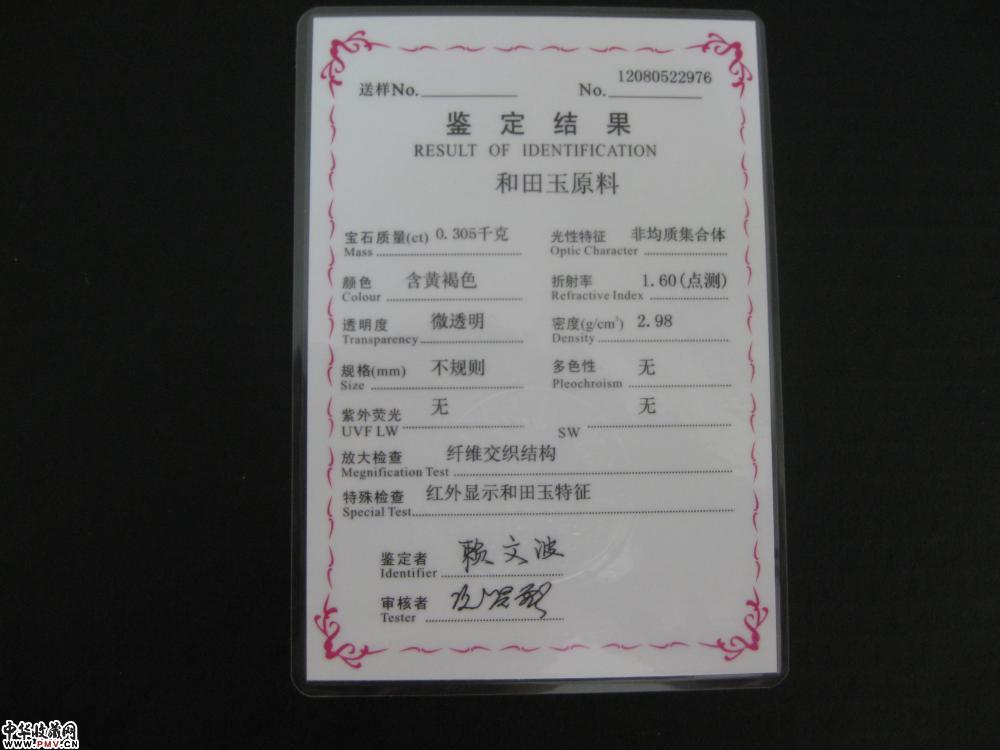 送样No. No. 12080522976
鉴定结果
RESULT OF IDENTIFICATION
和田玉原料
宝石质量(ct) 0.305千克 光性特征 非均质集合体
Mass Optic Character
颜色 含黄褐色 折射率 1.60(点测)
Colour Refractive Index
透明度 微透明 密度(g/cm³) 2.98
Transparency Density
规格(mm) 不规则 多色性 无
Size Pleochroism
紫外荧光 无 无
UVF LW SW
放大检查 纤维交织结构
Megnification Test
特殊检查 红外显示和田玉特征
Special Test
鉴定者 赖文波
Identifier
审核者
Tester
中华收藏网
www.PMV.CN